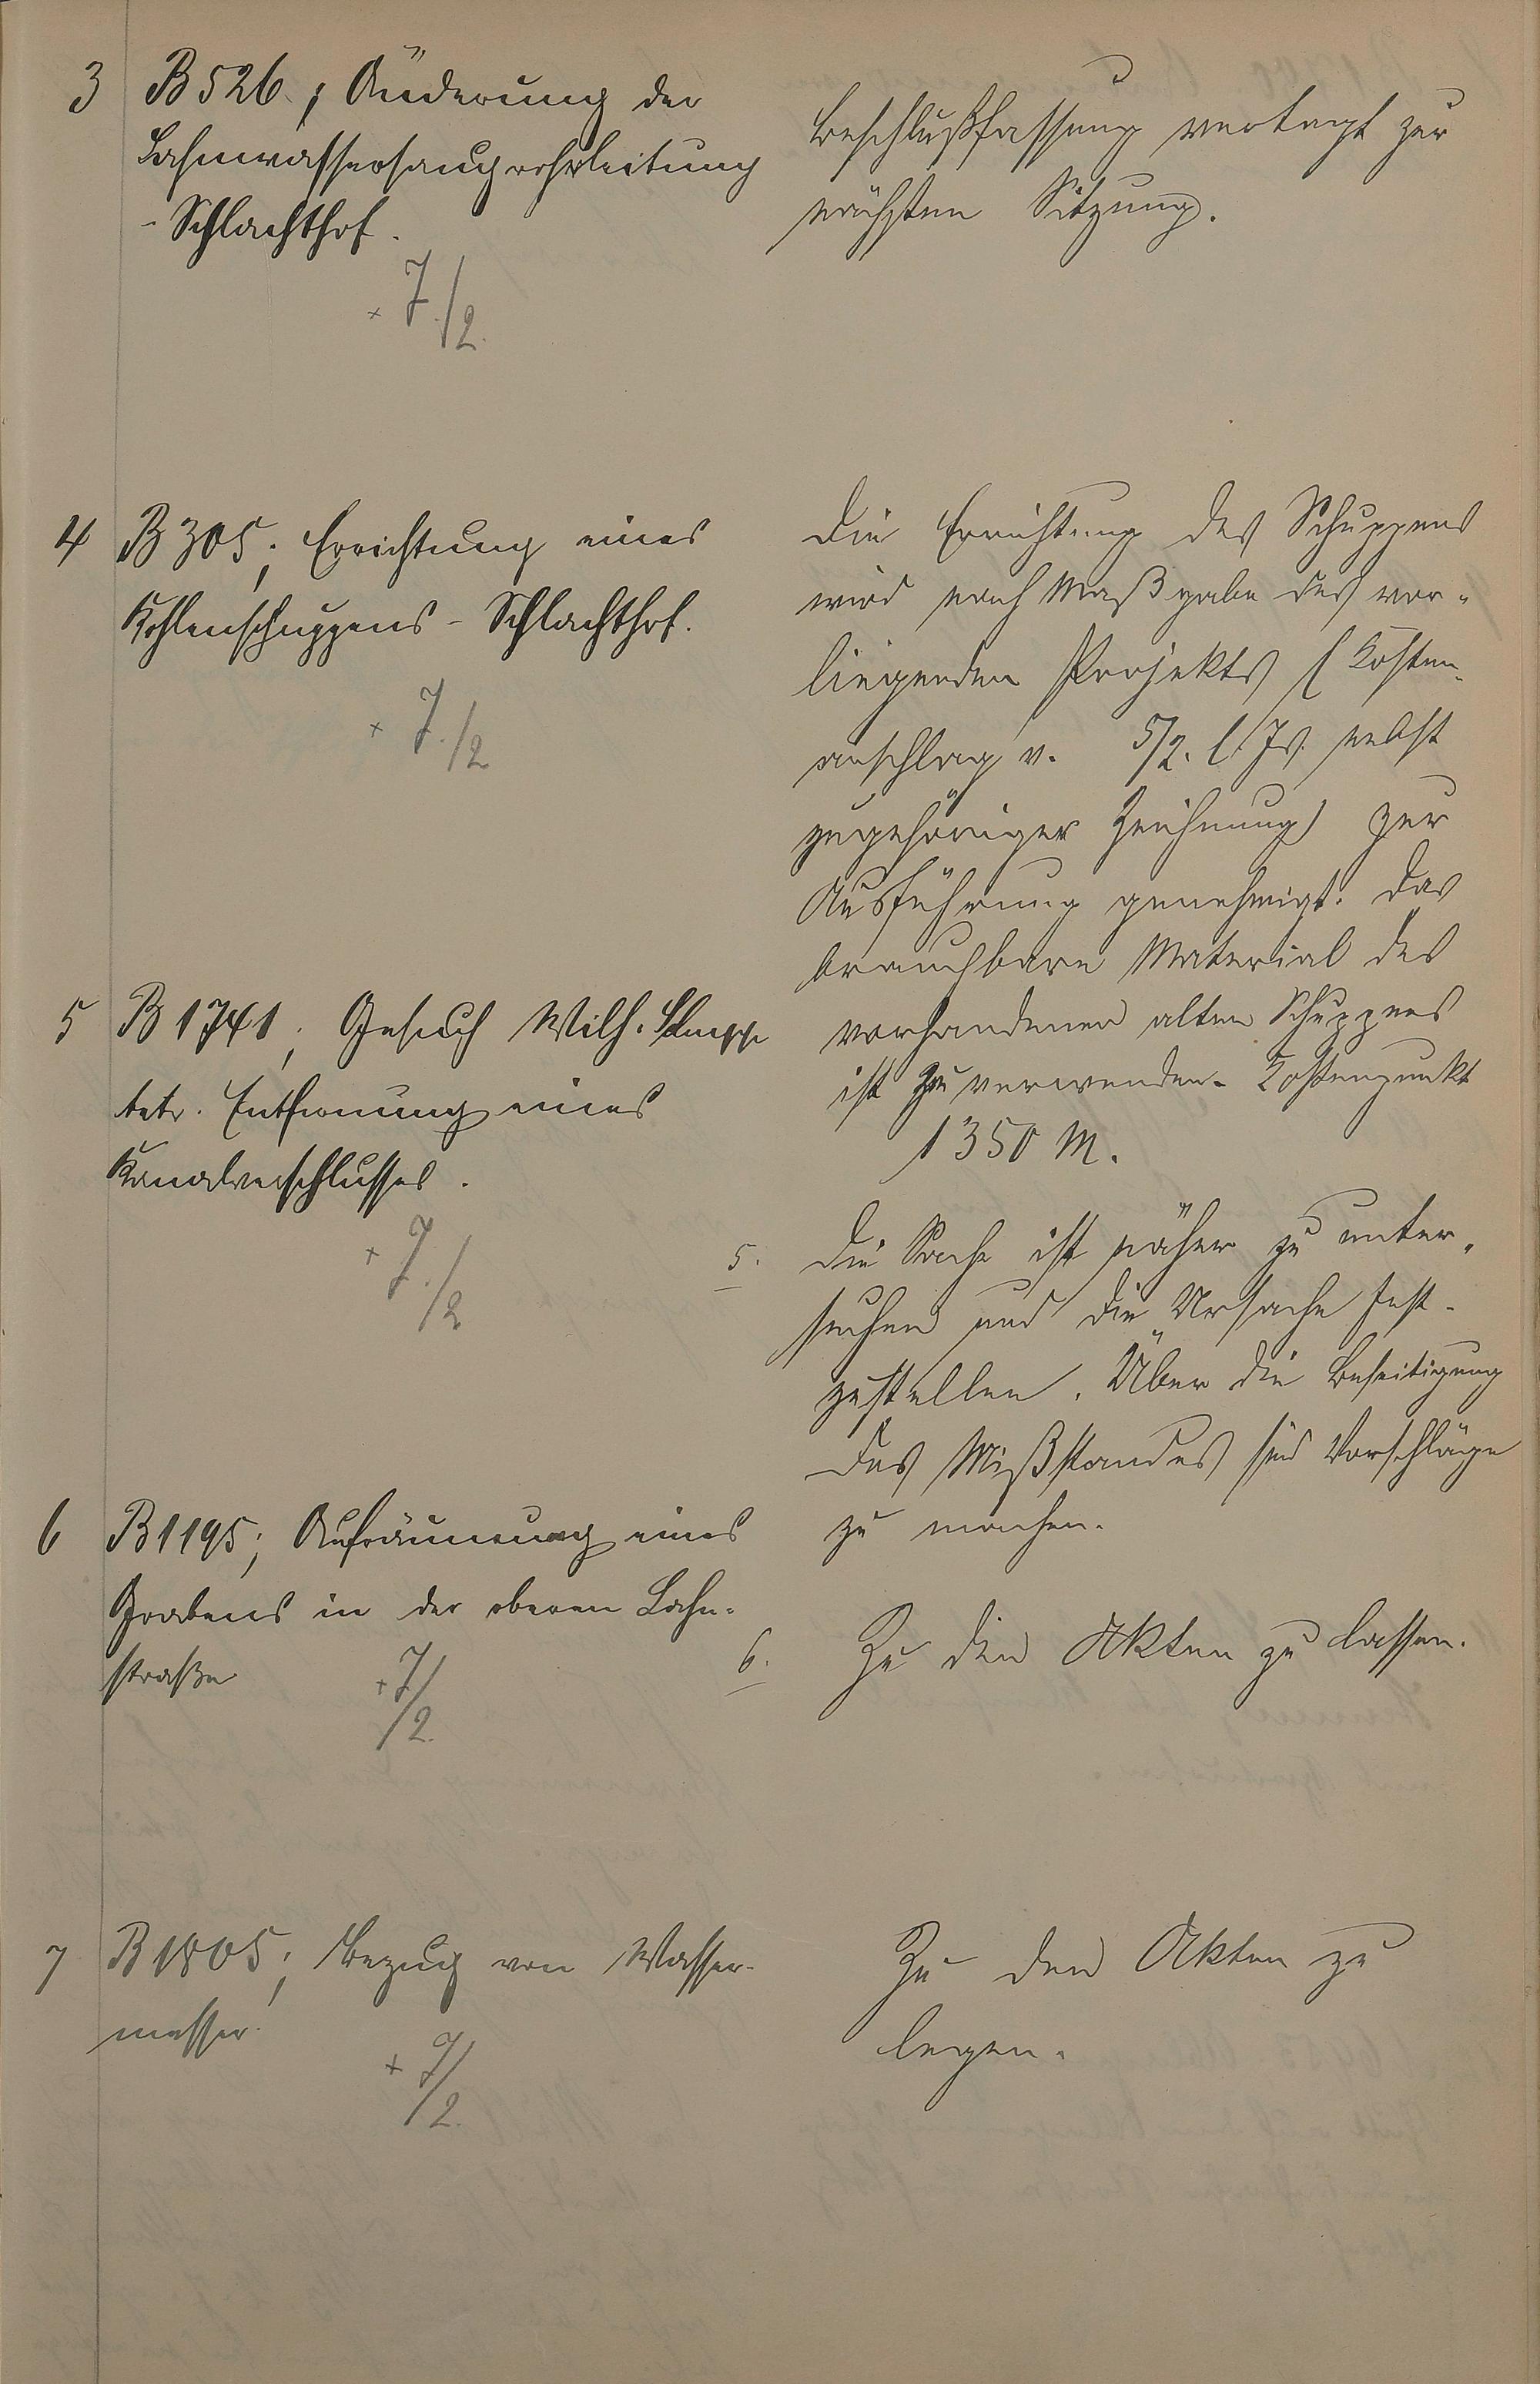 3 B 526; Änderung der
Lahnwassersaugrohrleitung
- Schlachthof.
+ 7./2.
Beschlußfassung vertagt zur
nächsten Sitzung.
4 B 305; Errichtung eines
Kohlenschuppens - Schlachthof.
+ 7./2
Die Errichtung des Schuppens
wird nach Maßgabe des vor-
liegenden Projekts (Kosten-
anschlag v. 5/2. l. Js. nebst
zugehöriger Zeichnung) zur
Ausführung genehmigt. Das
brauchbare Material des
vorhandenen alten Schuppens
ist zu verwenden. Kostenpunkt
1350 M.
5 B 1741; Gesuch Wilh.
betr. Entfernung eines
Kanalverschlusses.
+ 7./2
5. Die Sache ist näher zu unter-
suchen und die Ursache fest-
zustellen. Über die Beseitigung
des Mißstandes sind Vorschläge
zu machen.
6 B 1195; Aufräumung eines
Grabens in der oberen Lahn-
straße
+ 7/2.
6. Zu den Akten zu lassen.
7 B 1805; Bezug von Wasser-
messer.
+ 7/2.
Zu den Akten zu
legen.